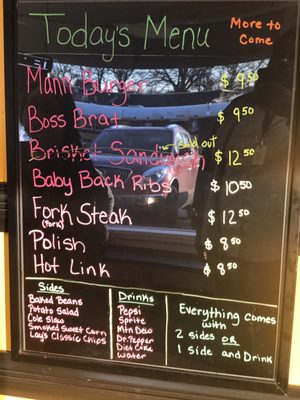 Todays Menu
More to Come
Mann Burger $ 9.50
Boss Brat $ 9.50
Brisket Sandwich sold out $ 12.50
Baby Back Ribs $ 10.50
Fork Steak $ 12.50
(Pork)
Polish $ 8.50
Hot Link $ 8.50
Sides
Baked Beans
Potato Salad
Cole Slaw
Smoked Sweet Corn
Lay's Classic Chips
Drinks
Pepsi
Sprite
Mtn Dew
Dr. Pepper
Diet Coke
Water
Everything comes
with
2 sides OR
1 side and Drink